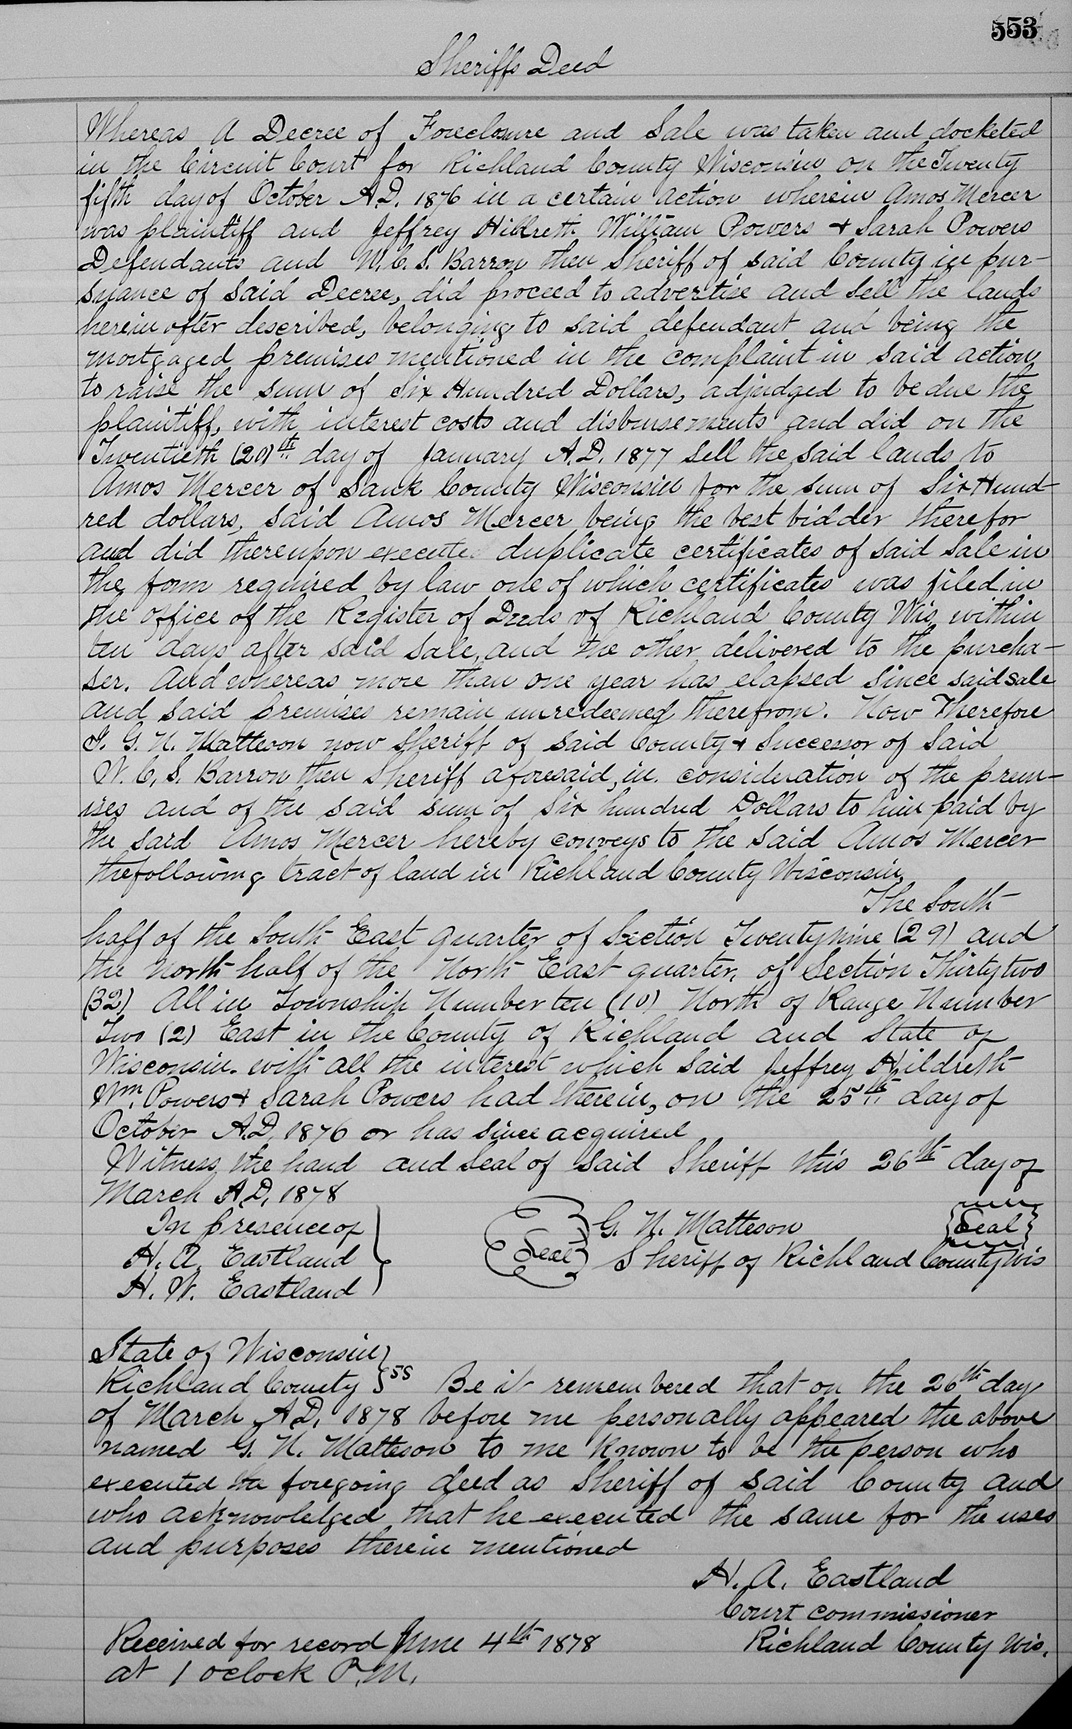 553
Sheriffs Deed
Whereas A Decree of Foreclosure and Sale was taken and docketed
in the Circuit Court for Richland County Wisconsin on the Twenty
fifth day of October A.D. 1876 in a certain action wherein Amos Mercer
was plaintiff and Jeffrey Hildreth William Powers + Sarah Powers
Defendants and W. C. S. Barron then Sheriff of said County in pur-
suance of said Decree, did proceed to advertise and sell the lands
herein after described, belonging to said defendant and being the
mortgaged premises mentioned in the complaint in said action
to raise the sum of Six Hundred Dollars, adjudged to be due the
plaintiff, with interest costs and disbursements and did on the
Twentieth (20)th day of January A.D. 1877 sell the said lands to
Amos Mercer of Sauk County Wisconsin for the sum of Six Hund-
red dollars, said Amos Mercer being the best bidder therefor
and did thereupon execute duplicate certificates of said sale in
the form required by law one of which certificates was filed in
the office of the Register of Deeds of Richland County Wis, within
ten days after said sale, and the other delivered to the purcha-
ser. And whereas more than one year has elapsed since said sale
and said premises remain unredeemed therefrom. Now Therefore
I. G. N. Matteson now Sheriff of said County + Successor of said
W. C. S. Barron then Sheriff aforesaid, in consideration of the prem-
ises and of the said sum of six hundred Dollars to him paid by
the said Amos Mercer hereby conveys to the said Amos Mercer
the following tract of land in Richland County Wisconsin,
The South
half of the South East quarter of Section Twenty nine (29) and
the north half of the North East quarter, of Section Thirty two
(32) All in Township Number ten (10) North of Range Number
Two (2) East in the County of Richland and State of
Wisconsin. with all the interest which said Jeffrey Hildreth
Wm. Powers + Sarah Powers had therein, on the 25th day of
October A.D. 1876 or has since acquired
Witness, the hand and seal of said Sheriff this 26th day of
March A.D. 1878
In presence of
H. A. Eastland
H. W. Eastland
Seal
G. N. Matteson Seal
Sheriff of Richland County Wis
State of Wisconsin
Richland County } SS Be it remembered that on the 26th day
of March A.D. 1878 before me personally appeared the above
named G. N. Matteson to me known to be the person who
executed the foregoing deed as Sheriff of said County and
who acknowlelged that he executed the same for the uses
and purposes therein mentioned
H. A. Eastland
Court commissioner
Richland County Wis.
Received for record June 4th 1878
at 1 oclock P.M.